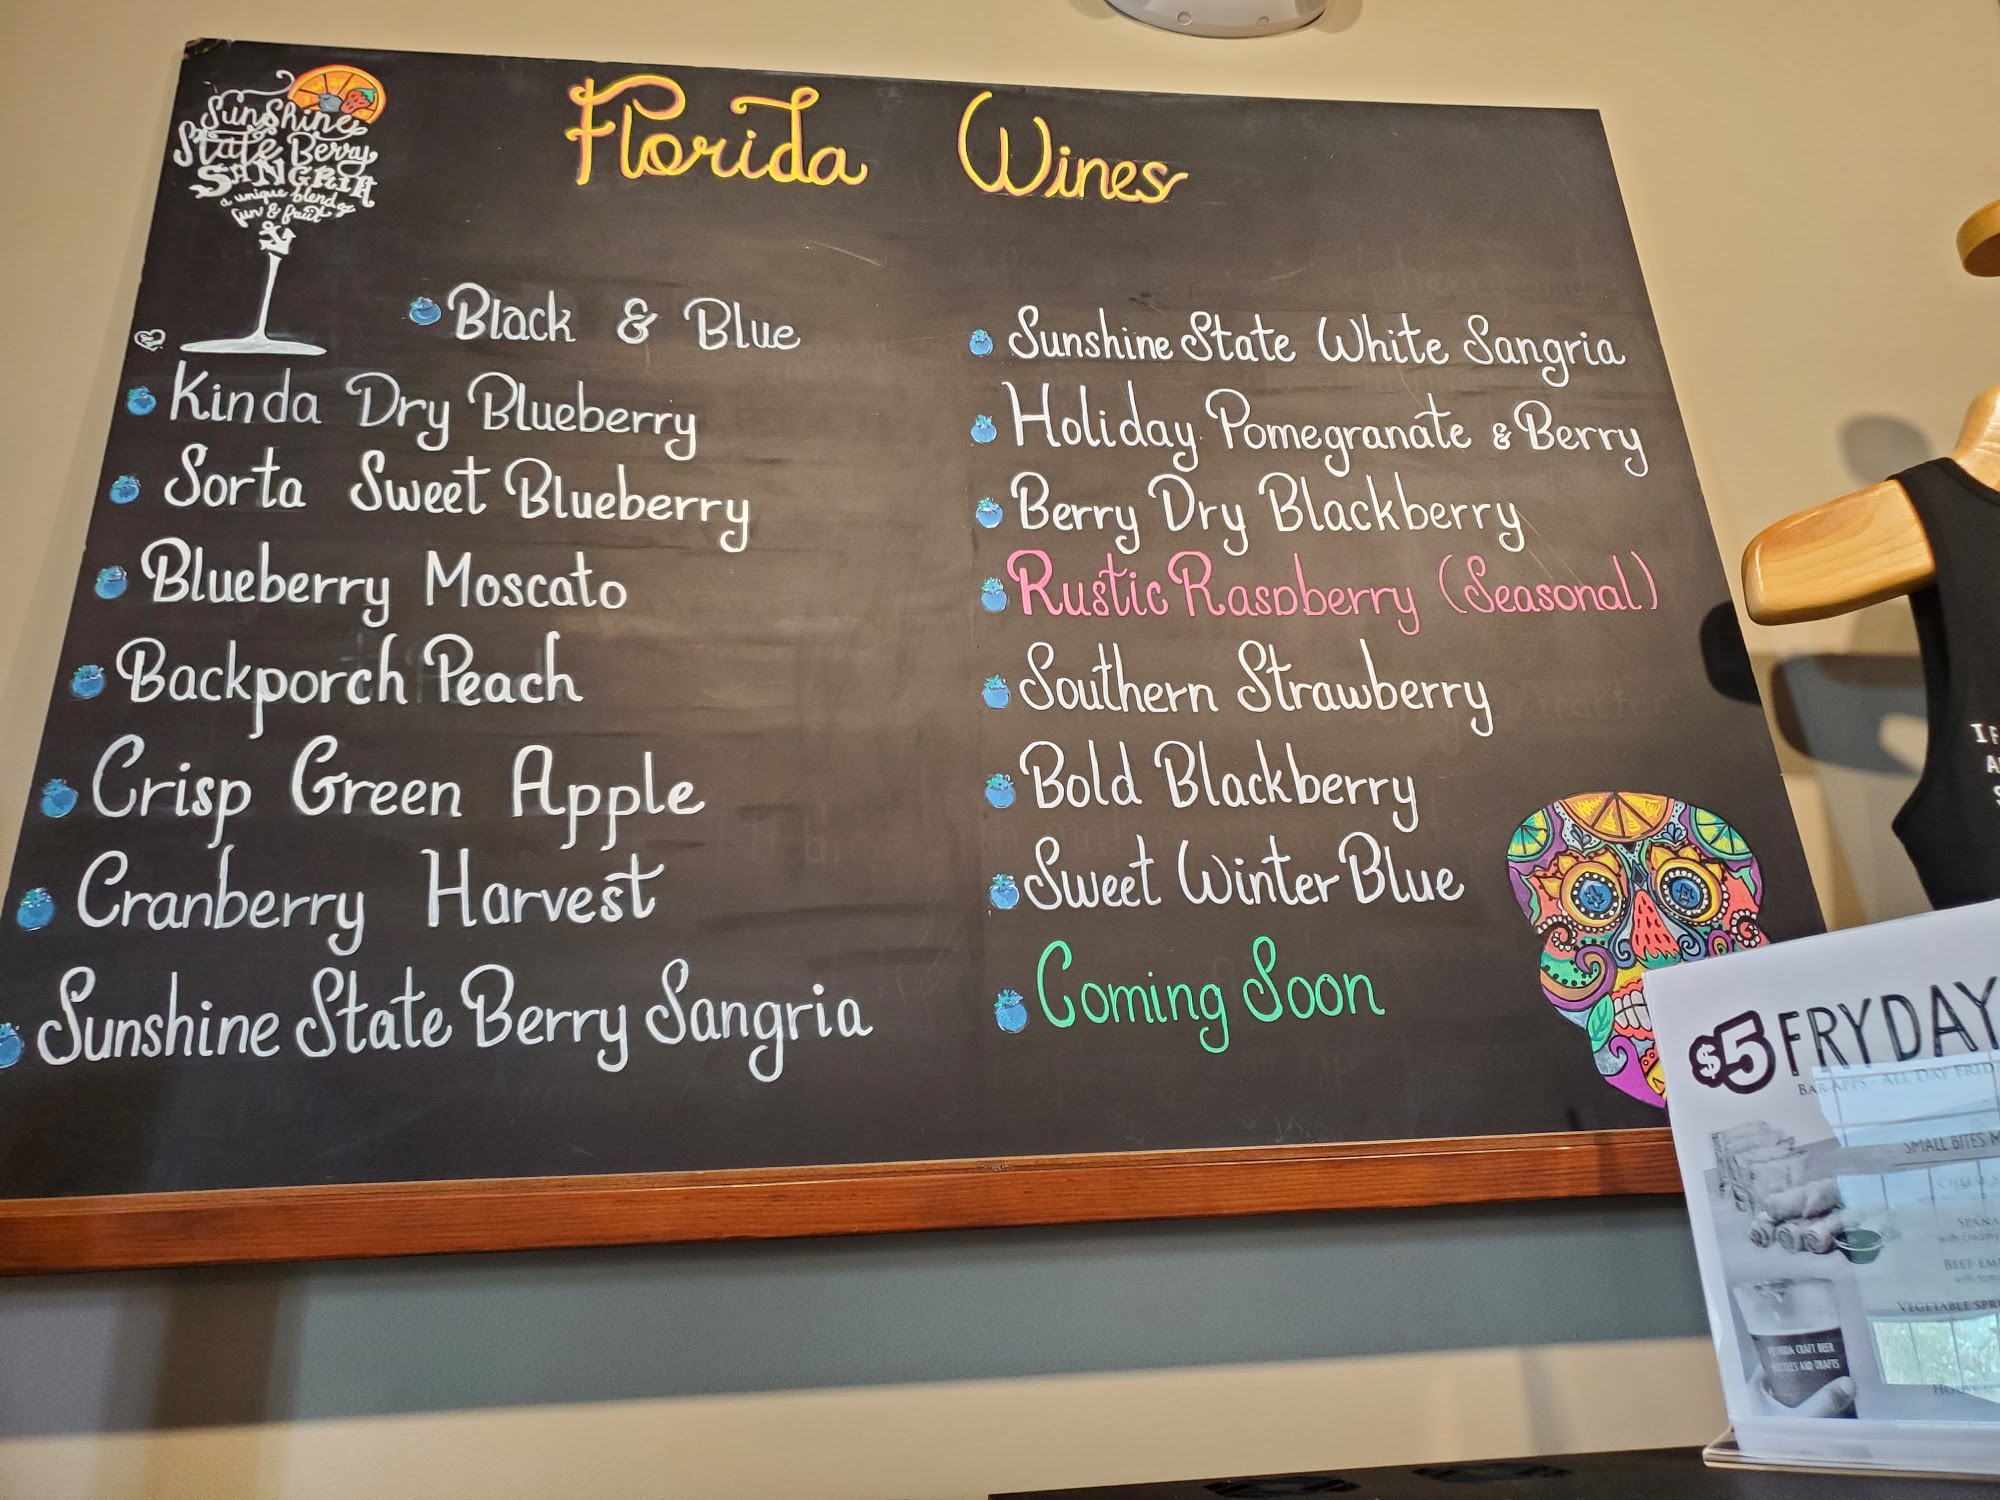 Sunshine
State Berry
SANGRIA
a unique blend of
fun & fruit
Florida Wines
Black & Blue
Kinda Dry Blueberry
Sorta Sweet Blueberry
Blueberry Moscato
Backporch Peach
Crisp Green Apple
Cranberry Harvest
Sunshine State Berry Sangria
Sunshine State White Sangria
Holiday Pomegranate & Berry
Berry Dry Blackberry
Rustic Raspberry (Seasonal)
Southern Strawberry
Bold Blackberry
Sweet Winter Blue
Coming Soon
I
$5 FRYDAY
BAR APPS - ALL DAY
SMALL BITES
with creamy
BEEF
VEGETABLE
FLORIDA CRAFT BEER
BOTTLES AND DRAFTS